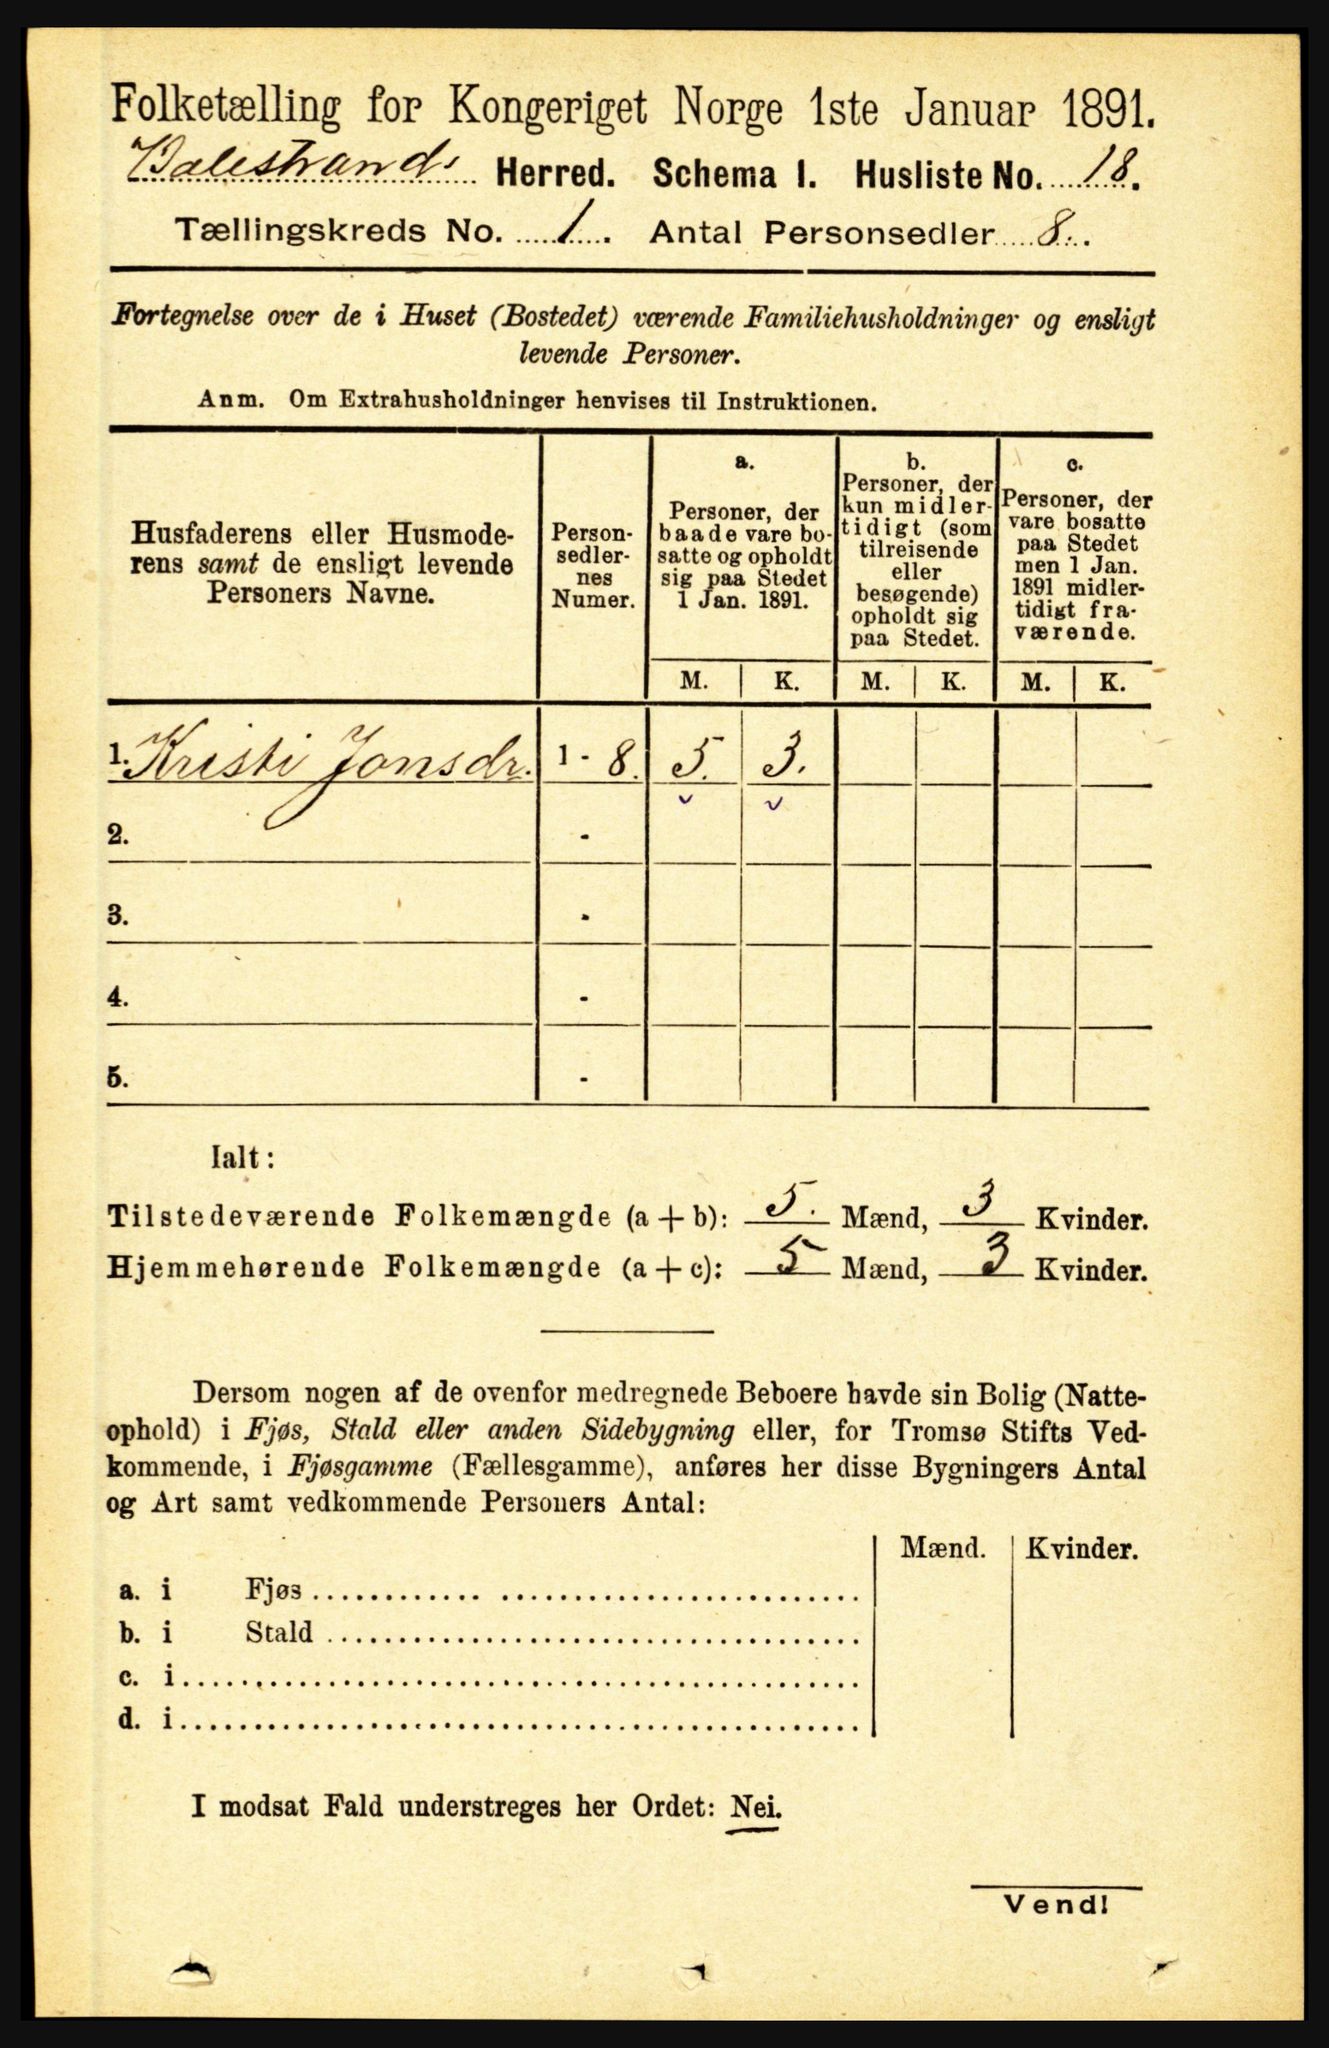 Folketælling for Kongeriget Norge 1ste Januar 1891.
Balestrands Herred. Schema I. Husliste No. 18.
Tællingskreds No. 1. Antal Personsedler 8.
Fortegnelse over de i Huset (Bostedet) værende Familiehusholdninger og ensligt
levende Personer.
Anm. Om Extrahusholdninger henvises til Instruktionen.
Husfaderens eller Husmode-
rens samt de ensligt levende
Personers Navne.
Person-
sedler-
nes
Numer.
a.
Personer, der
baade vare bo-
satte og opholdt
sig paa Stedet
1 Jan. 1891.
b.
Personer, der
kun midler-
tidigt (som
tilreisende
eller
besøgende)
opholdt sig
paa Stedet.
c.
Personer, der
vare bosatte
paa Stedet
men 1 Jan.
1891 midler-
tidigt fra-
værende.
M. K. M. K. M. K.
1. Kristi Jonsdr. 1 - 8. 5. 3.
2. -
3. -
4. -
5. -
Ialt:
Tilstedeværende Folkemængde (a + b): 5. Mænd, 3 Kvinder.
Hjemmehørende Folkemængde (a + c): 5 Mænd, 3 Kvinder.
Dersom nogen af de ovenfor medregnede Beboere havde sin Bolig (Natte-
ophold) i Fjøs, Stald eller anden Sidebygning eller, for Tromsø Stifts Ved-
kommende, i Fjøsgamme (Fællesgamme), anføres her disse Bygningers Antal
og Art samt vedkommende Personers Antal:
Mænd. Kvinder.
a. i Fjøs
b. i Stald
c. i
d. i
I modsat Fald understreges her Ordet: Nei.
Vend!